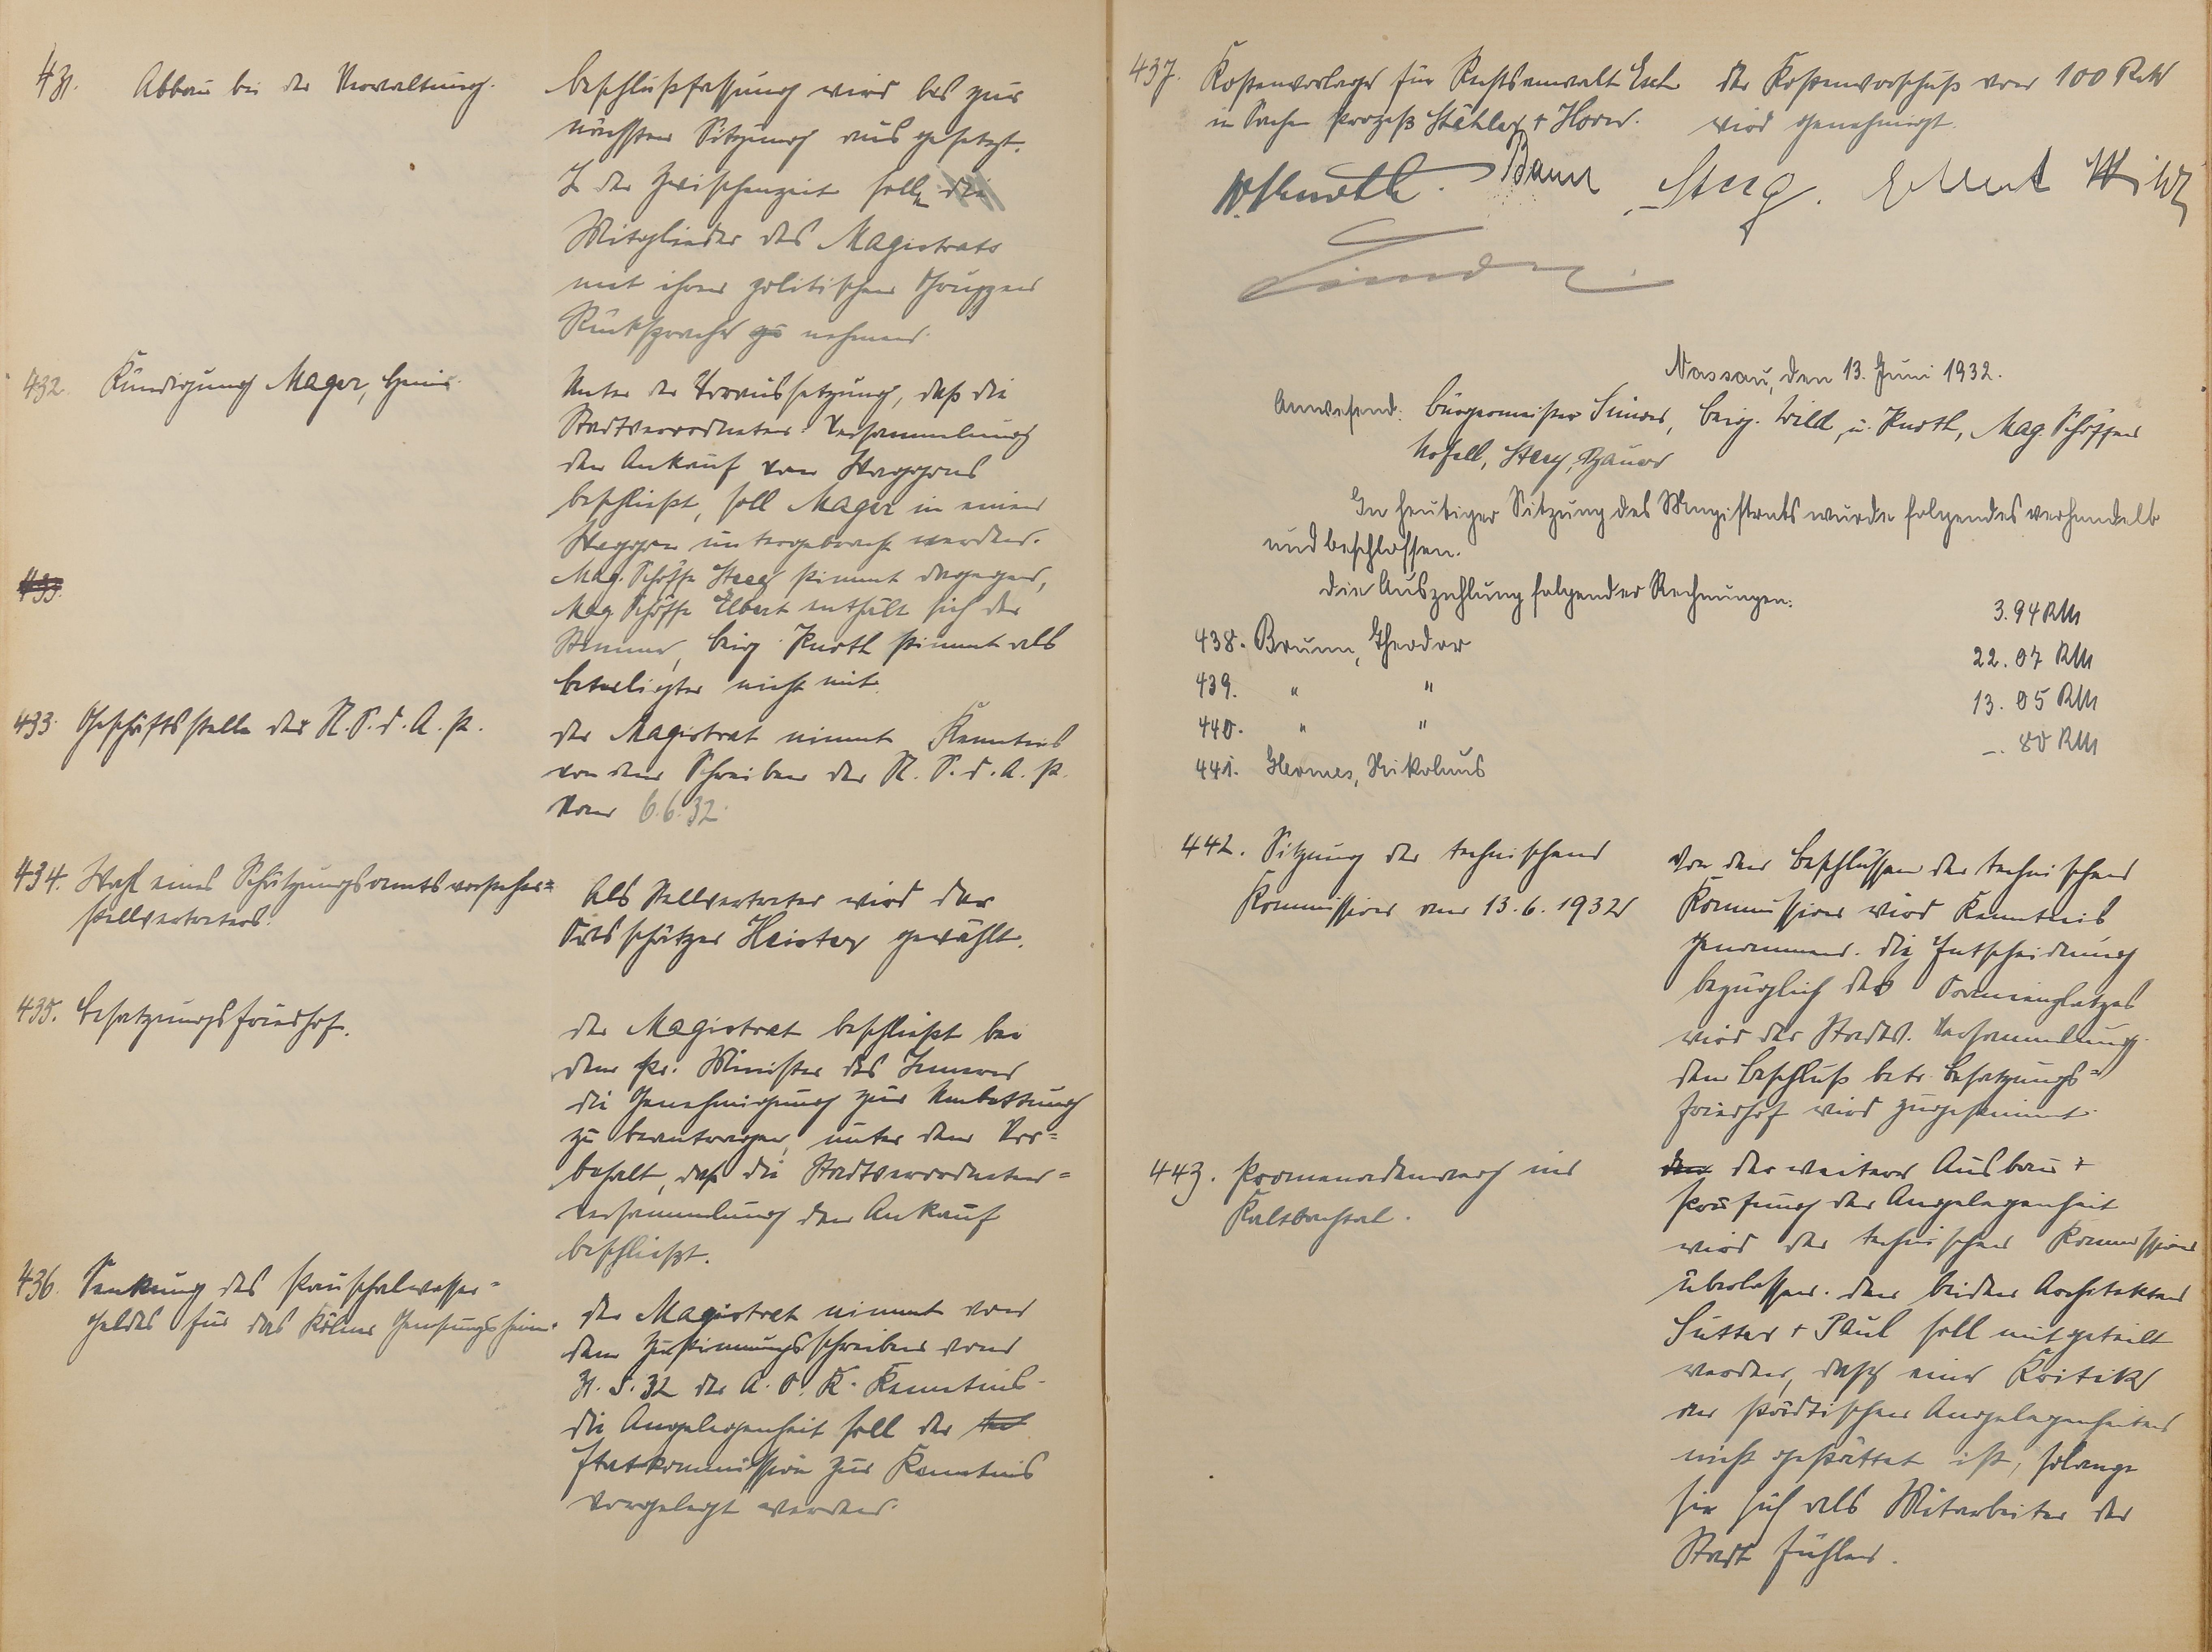 431. Abbau bei der Verwaltung.
Beschlußfassung wird bis zur
nächsten Sitzung ausgesetzt.
In der Zwischenzeit sollen die
Mitglieder des Magistrats
mit ihren politischen Gruppen
Rücksprache zu nehmen.
432. Kündigung Mager,
Unter der Voraussetzung, daß die
Stadtverordneten-Versammlung
den Ankauf von Waggons
beschließt, soll Mager in einem
Waggon untergebracht werden.
Mag. Schöffe Steeg stimmt dagegen,
Mag Schöffe Elbert enthält sich der
Stimme, Beig. Knoth stimmt als
beteiligter nicht mit.
433.
433. Geschäftsstelle der N.S.d.A.P.
Der Magistrat nimmt Kenntnis
von dem Schreiben der N.S.d.A.P.
vom 6.6.32.
434. Wahl eines Schätzungsamtsvorsteher=
stellvertreters.
Als Stellvertreter wird der
Ortsschätzer Heister gewählt.
435. Besatzungsfriedhof.
Der Magistrat beschließt bei
dem Pr. Minister des Innern
die Genehmigung zur Umbettung
zu beantragen, unter dem Vor=
behalt, daß die Stadtverordneten=
versammlung den Ankauf
beschließt.
436. Senkung des Pauschalwasser=
geldes für das Kölner Genesungsheim.
Der Magistrat nimmt von
dem Zustimmungsschreiben vom
31.5.32 der A.O.K. Kenntnis.
Die Angelegenheit soll der
Etatkommission zur Kenntnis
vorgelegt werden.
437. Kostenvorlage für Rechtsanwalt
in Sachen Prozeß Stähler + Horn.
Der Kostenvorschuß von 100 RM
wird genehmigt.
Knoth. Bauer Steeg. Elbert Wild
Nassau, den 13. Juni 1932.
Anwesend: Bürgermeister Beig. Wild, u. Knoth, Mag. Schöffen
Steeg, Bauer
In heutiger Sitzung des Magistrats wurde folgendes verhandelt
und beschlossen.
Die Auszahlung folgender Rechnungen:
438. Bruun, Theodor 3.94 RM
439. " " 22.07 RM
440. " " 13.05 RM
441. Hermes, Nikolaus –.80 RM
442. Sitzung der technischen
Kommission vom 13.6.1932
Von den Beschlüssen der technischen
Kommission wird Kenntnis
genommen. Die Entscheidung
bezüglich des
wird der Stadtv. Versammlung.
Dem Beschluß betr. Besatzungs=
friedhof wird zugestimmt.
443. Promenadenweg ins
Kaltbachtal.
Der weitere Ausbau +
Prüfung der Angelegenheit
wird der technischen Kommission
überlassen. Den beiden Architekten
Sutter + Paul soll mitgeteilt
werden, daß eine Kritik
der städtischen Angelegenheiten
nicht gestattet ist, solange
sie sich als Mitarbeiter der
Stadt fühlen.